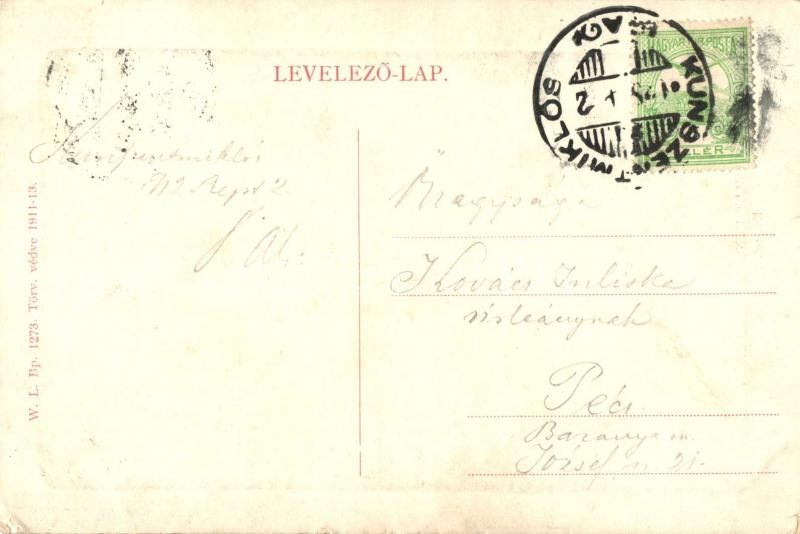 LEVELEZŐ-LAP.
KUNSZENTMIKLÓS
MAGYAR KIR. POSTA
Kunszentmiklós
912 Sept 2
Nagysága
Kovács Juliska
úrleánynak
Pécs
Baranya m.
József u 21.
W. L. Bp. 1273. Törv. védve 1911-13.